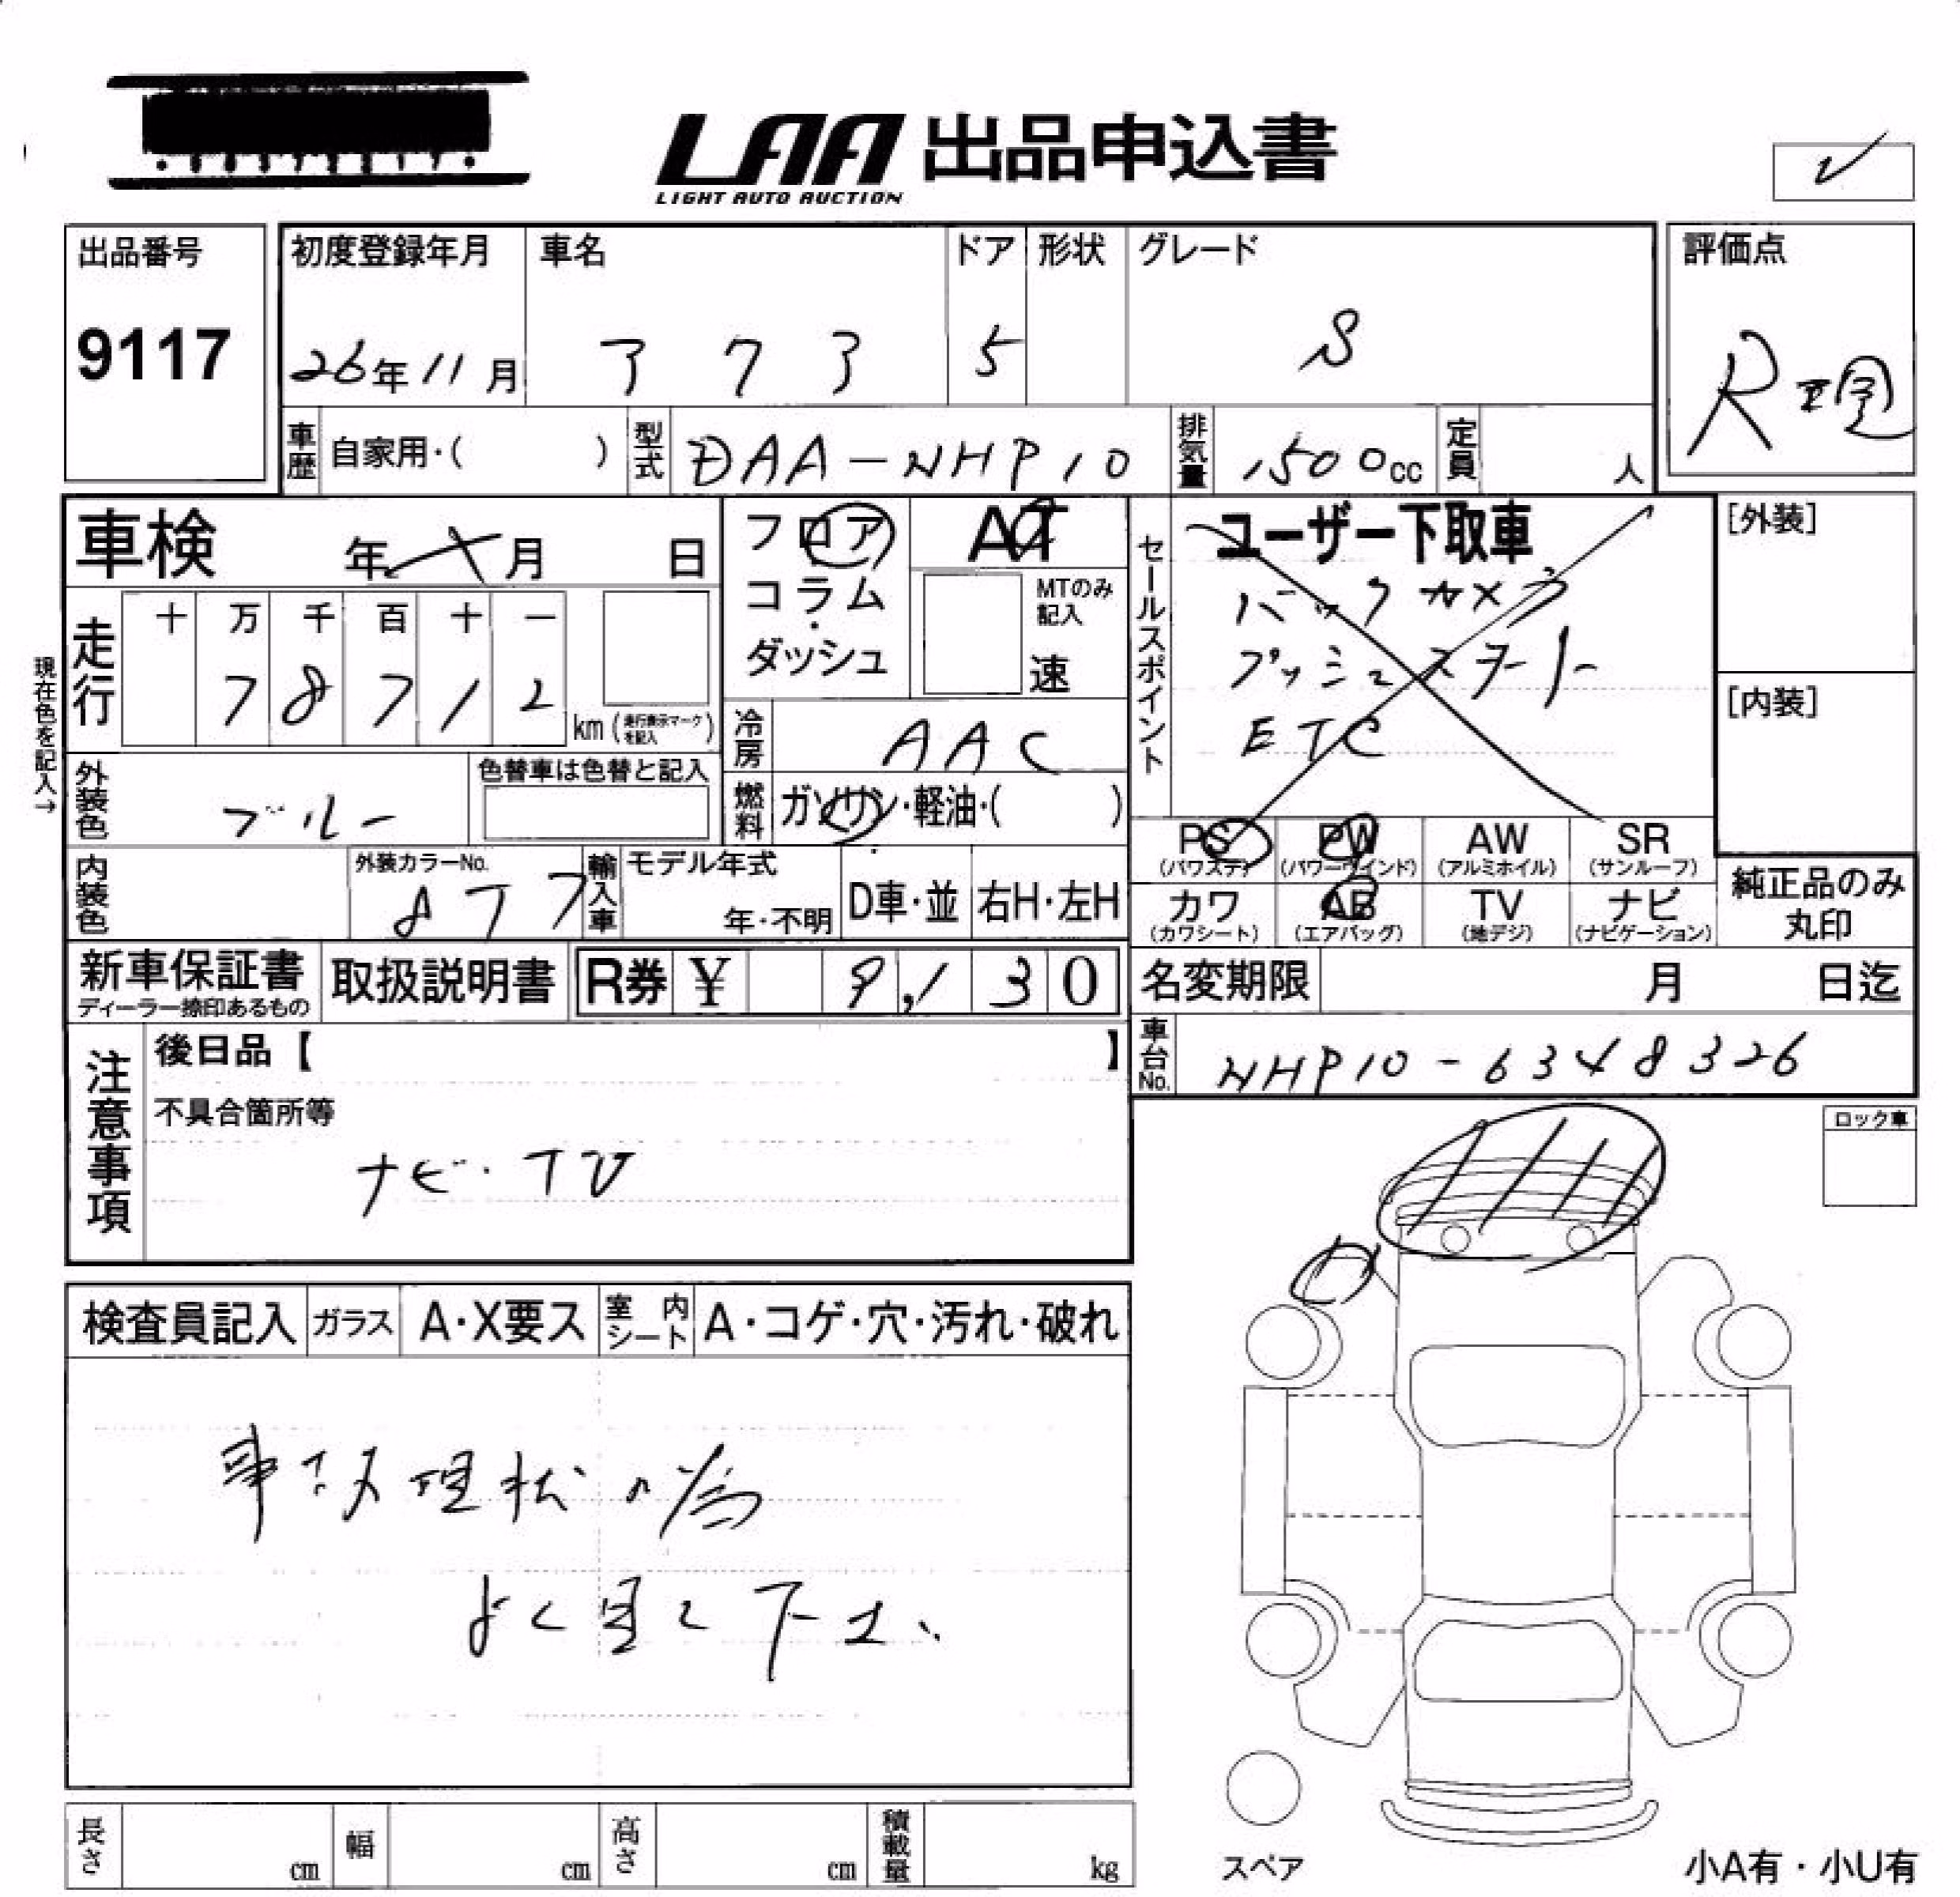 LAA 出品申込書
LIGHT AUTO AUCTION
出品番号
9117
初度登録年月
26年11月
車名
アクア
ドア
5
形状
グレード
S
評価点
R
車歴
自家用・( )
型式
DAA-NHP10
排気量
1500cc
定員
人
車検
年 月 日
フロア
コラム・
ダッシュ
AT
MTのみ
記入
速
セールスポイント
ユーザー下取車
バックカメラ
プッシュスタート
ETC
[外装]
[内装]
現在色を記入→
走行
十 万 千 百 十 一
7 8 7 1 2
km (走行表示マークを記入)
冷房
AAC
外装色
ブルー
色替車は色替と記入
燃料
ガソリン・軽油・( )
PS
(パワステ)
PW
(パワーウインド)
AW
(アルミホイル)
SR
(サンルーフ)
内装色
外装カラーNo.
8T7
輸入車
モデル年式
年・不明
D車・並
右H・左H
カワ
(カワシート)
AB
(エアバッグ)
TV
(地デジ)
ナビ
(ナビゲーション)
純正品のみ
丸印
新車保証書
ディーラー捺印あるもの
取扱説明書
R券 ¥ 9,130
名変期限
月 日迄
注意事項
後日品【 】
車台No.
NHP10-6348326
不具合箇所等
ナビ・TV
ロック車
検査員記入
ガラス
A・X要ス
室内
シート
A・コゲ・穴・汚れ・破れ
事故現状の為
よく見て下さい
長さ
cm
幅
cm
高さ
cm
積載量
kg
スペア
小A有・小U有